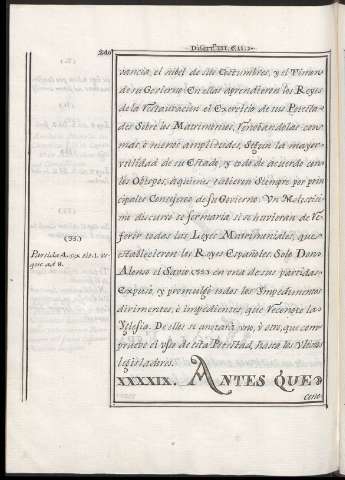 240
Disert.ⁿ III. C. II.
vancia, el nibel de sus Costumbres, y el Timon
de su Govierno. En ellas aprendieron los Reyes
de la Restauracion el Exercicio de sus Potesta-
des Sobre los Matrimonios, renobandolas con
mas, ò menos amplitudes, Segun la mayor
utilidad de su Estado, y todo de acuerdo con
los Obispos, àquienes tubieron Siempre por prin-
cipales Consejeros de su Govierno. Un
discurso se formaria si se hubieran de Re-
ferir todas las Leyes Matrimoniales, que
establecieron los Reyes Españoles. Solo Don
Alonso el Savio (33) en una de sus partidas
Expuso, y promulgò todos los Ympedimentos
dirimentes, è impedientes, que Reconoce la
Yglesia. De ellos se anotarà uno, ù otro, que com-
pruebe el uso de esta Potestad, hasta los Ultimos
legisladores.
XXXXIX. ANTES QUE
(33)
Partida 4. tit.
que ad 8.